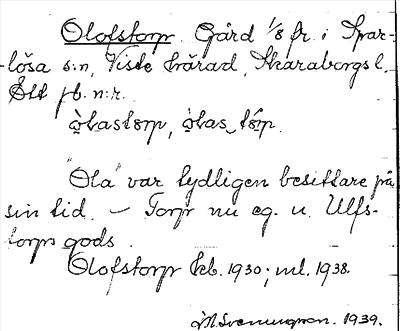 Olofstorp Gård 1/8 fr. i Spar-
-lösa s:n, Viste härad, Skaraborgs l.
Ett jb. n:r.
òlastorp, òlas tórp.
"Ola" var tydligen besittare på
sin tid. – Torp nu eg. u. Ulfs-
torps gods.
Olofstorp kb. 1930; ml. 1938.
Sveningson. 1939.